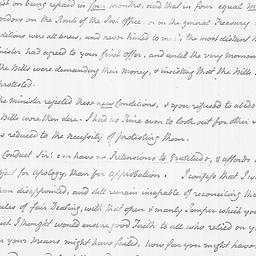 ist on being repaid in four months, and that in four equal
endors on the Bank of the Post office, or on the general Treasury
ditions were all new, and never hinted to me in the most distant
inister had agreed to your first offer, and until the very moment
the Mills were demanding their money, & insisting that the Mills
protested.
he minister rejected these new Conditions, & you refused to abide
Mills were then due. I had no time even to look out for other
s reduced to the necessity of protesting them.
Conduct Sir! can have no Pretensions to gratitude, & affords
ject for apology, than for approbation. I confess that I
than disappointed, and still remain incapable of reconciling
ules of fair Dealing, with that open & manly Temper which you
ch I thought would ensure good Faith to all who relied on
n your means might have failed, how far you might have